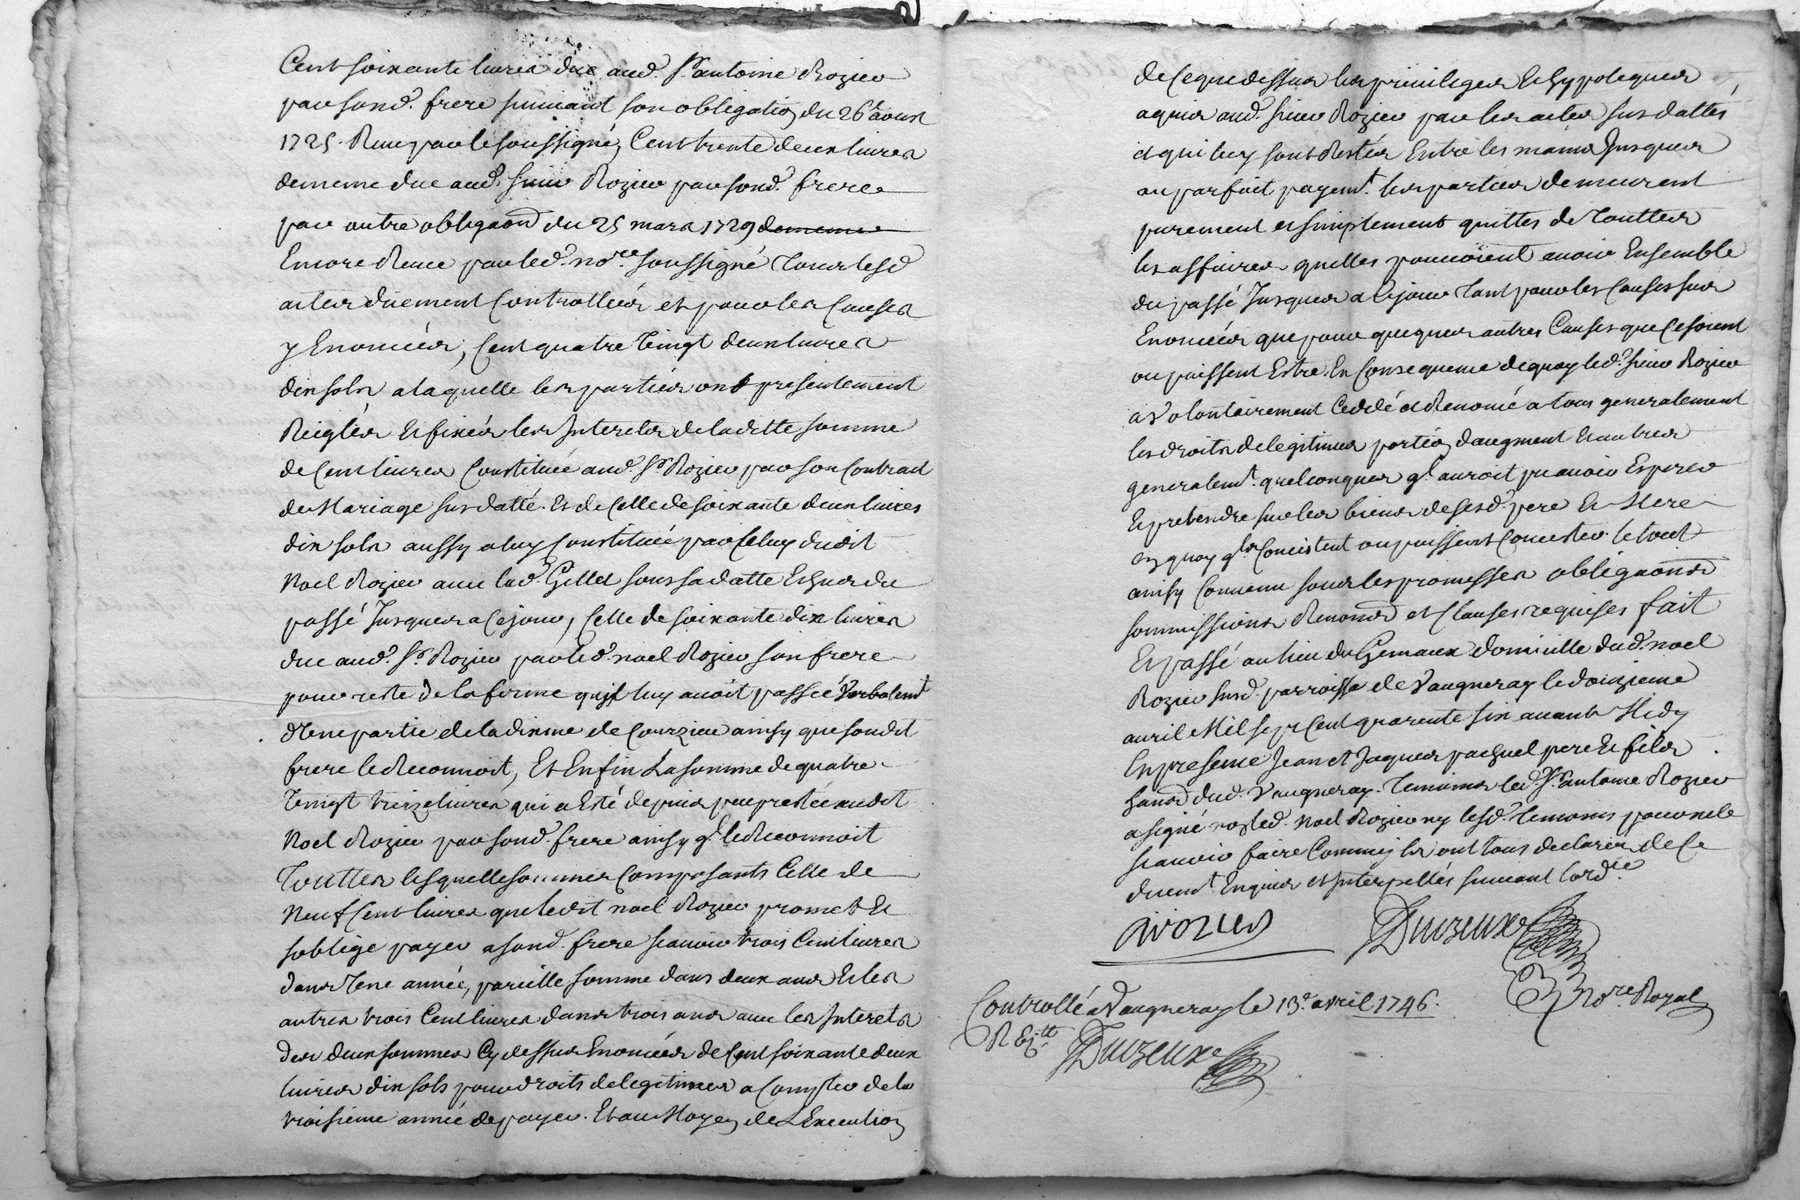 Cent soixante livres due aud. Sr antoine Rozier
par sond. frere suivant son obligation du 26e aoust
1725. Reue par le soussigné, Cent trente deux livres
de meme due aud. sieur Rozier par sond. frere
par autre obligaon du 25 mars 1729 de meme
Encore Reuce par led. nore soussigné Tous lesd
actes duement Controllés et pour les Causes
y Enoncées, Cent quatre vingt deux livres
dix sols a laquelle les parties ont presentement
Reiglés et fixées les Interets de ladette somme
de Cent livres Constituée aud. Sr Rozier par son Contract
de Mariage susdatté. Et de Celle de soixante deux livres
dix sols aussy a luy Constituée par Celuy dudit
Noel Rozier avec lad. Gillet sous sa datte Echus du
passé Jusques a Ce jour, Celle de soixante dix livres
due aud. Sr Rozier par led. noel Rozier son frere
pour reste de la ferme qu'il luy avoit passée verbalemt
d'Une partie de la dixme de Courzieu ainsy que sondit
frere le Reconnoit, Et Enfin La somme de quatre
vingt treize livres qui a Esté depuis peu prestée audit
Noel Rozier par sond. frere ainsy ql le Reconnoit
Touttes lesquelles sommes Composants Celle de
Neuf Cent livres que ledit noel Rozier promet Et
s'oblige payer a sond. frere scavoir trois Cent livres
dans Une année, pareille somme dans deux ans Et les
autres trois Cent livres dans trois ans avec les Interets
des deux sommes Cy dessus Enoncées de Cent soixante deux
livres dix sols pour droits de legitimes a Compter de la
troisieme année de payer. Et au Moyen de L'Execution
de Ce que dessus les privileges Et hypoteques
aquis aud. sieur Rozier par les actes susdattés
et qui luy sont Restés Entre les mains Jusques
au parfait payemt. les parties demeurent
purement et simplement quittes de Touttes
les affaires quelles pouvoient avoir Ensemble
du passé Jusques a Ce jour Tant pour les Causes sus
Enoncées que pour quelques autres Causes que Ce soient
ou puissent Estre. En Consequence de quoy led. sieur Rozier
a volontairement Ceddé et Renoncé a tous generalement
les droits de legitimes portion d'augment Et autres
generalemt. quelconques ql auroit pu avoir Esperer
Et pretendre sur les biens de sesd. pere Et Mere
en quoy qls Concistent ou puissent Concister. le tout
ainsy Convenu sous les promesses obligaons
soumissions Renonons et Clauses requises fait
Et passé au lieu du Gemaux domicille dud. noel
Rozier susd. parroisse de Vaugneray le douzieme
avril Mil sept Cent quarente six avant Midy
En presence Jean et Jaques pachuel pere Et fils
hants dud. Vaugneray. Temoins led. Sr antoine Rozier
a signé non led. Noel Rozier ny lesd. Temoins pour ne le
scavoir faire Comme ils ont tous declarés de Ce
duemt. Enquis et Interpellés suivant l'ordce
A Rozier
Duizeux
nore Royal
Controllé a Vaugneray le 13e. avril 1746.
R
Duizeux